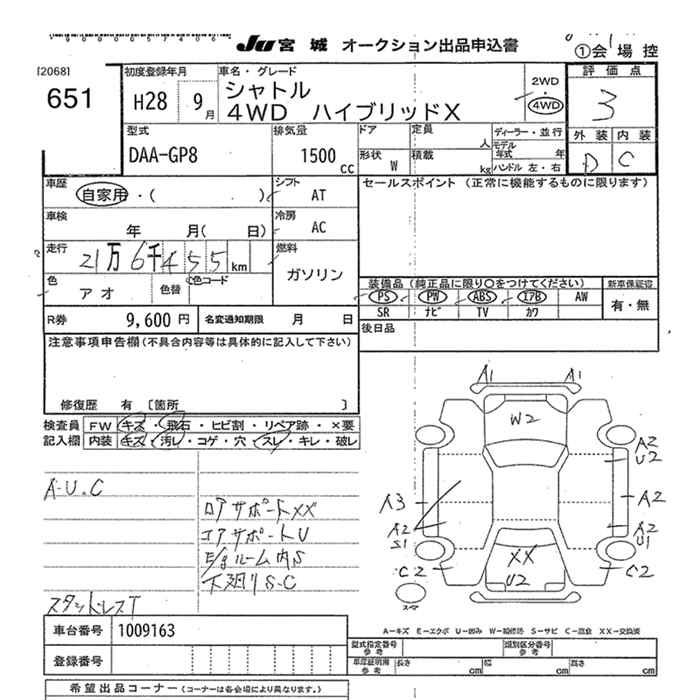 JU 宮城 オークション出品申込書
①会場控
[2068]
651
初度登録年月
H28 9月
車名・グレード
シャトル
4WD ハイブリッドX
2WD
・
4WD
評価点
3
外装 内装
D C
型式
DAA-GP8
排気量
1500 cc
ドア
定員 人
形状 W
積載 kg
ディーラー・並行
モデル年式 年
ハンドル 左・右
車歴
自家用・( )
シフト
AT
セールスポイント (正常に機能するものに限ります)
車検
年 月( 日)
冷房
AC
走行
21万6千455km
燃料
ガソリン
色
アオ
色替
色コード
装備品 (純正品に限り○をつけてください)
新車保証書
PS PW ABS エアB AW
SR ナビ TV カワ
有・無
R券 9,600円
名変通知期限 月 日
後日品
注意事項申告欄(不具合内容等は具体的に記入して下さい)
修復歴 有 [箇所 ]
検査員記入欄
FW キズ・飛石・ヒビ割・リペア跡・×要
内装 キズ・汚レ・コゲ・穴・スレ・キレ・破レ
A-U.C
ロアサポートXX
コアサポートU
E/gルーム内S
下廻りS-C
スタットレスT
A1 A1
W2
A2
U2
A3
A2
A2
S1
A2
U1
C2
XX
U2
C2
スペア
車台番号 1009163
登録番号
A−キズ E−エクボ U−凹み W−補修跡 S−サビ C−腐食 XX−交換済
型式指定番号 参考
類別区分番号 参考
車庫証明用 参考
長さ cm 幅 cm 高さ cm
希望出品コーナー (コーナーは各会場により異なります。)